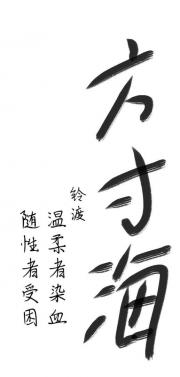 方寸海
铃渡
温柔者染血
随性者受困